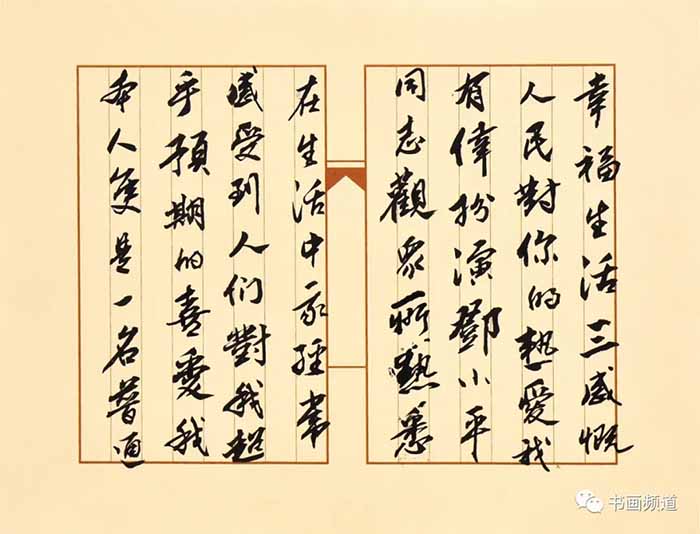 幸福生活三感慨
人民對你的熱愛我
有偉扮演鄧小平
同志觀眾所熟悉
在生活中我經常
感受到人们對我超
乎預期的喜愛我
本人隻是一名普通
书画频道